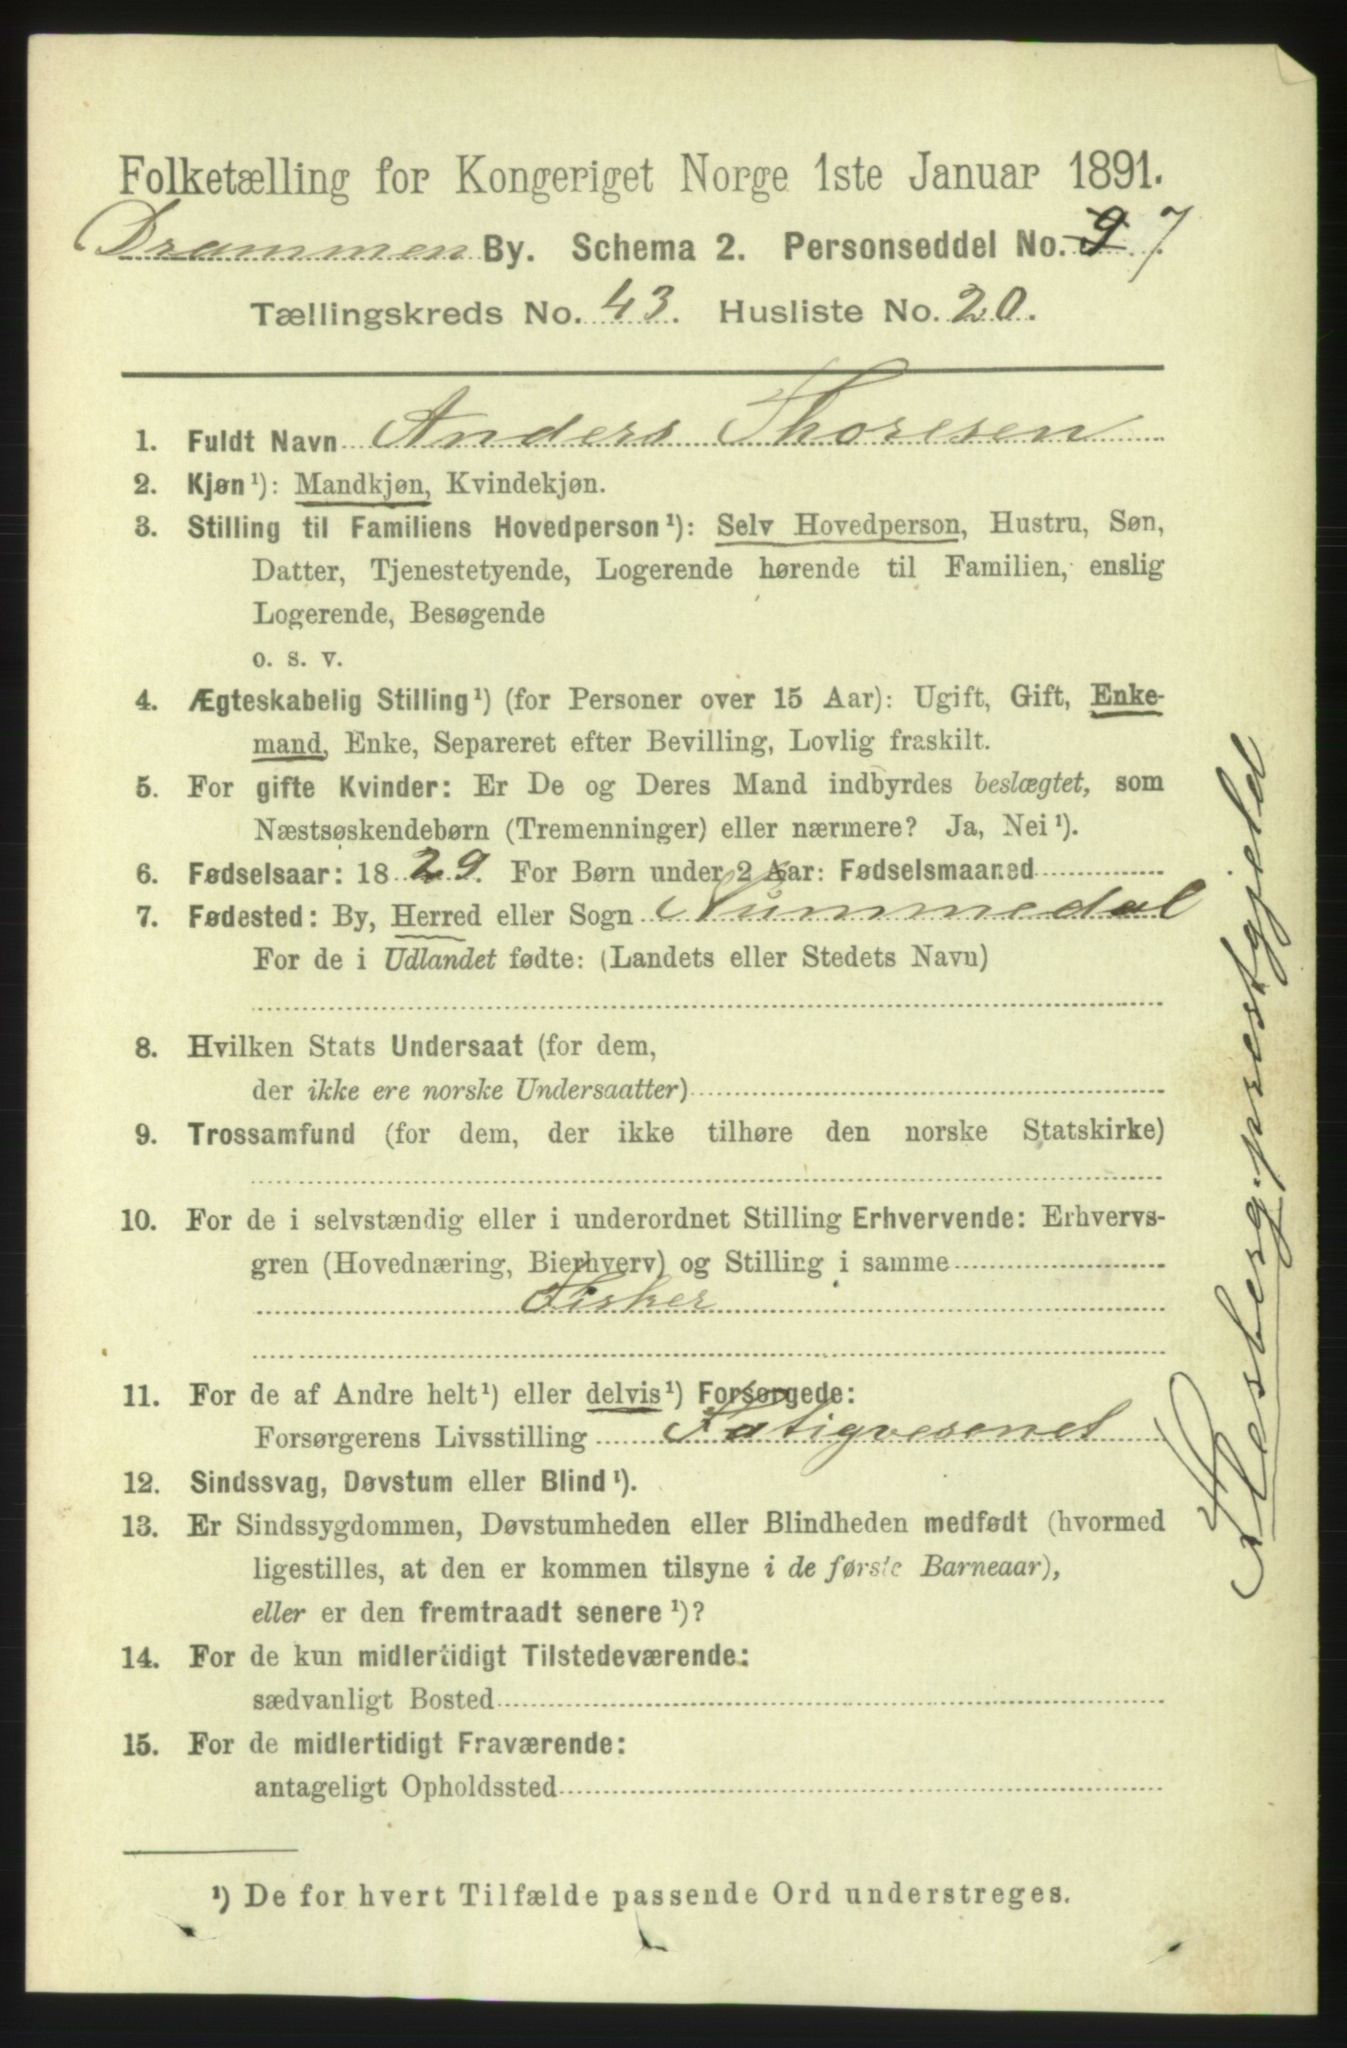 Folketælling for Kongeriget Norge 1ste Januar 1891.
Drammen By. Schema 2. Personseddel No. 9 7
Tællingskreds No. 43. Husliste No. 20.
1. Fuldt Navn Anders Thoresen
2. Kjøn¹): Mandkjøn, Kvindekjøn.
3. Stilling til Familiens Hovedperson¹): Selv Hovedperson, Hustru, Søn,
Datter, Tjenestetyende, Logerende hørende til Familien, enslig
Logerende, Besøgende
o. s. v.
4. Ægteskabelig Stilling¹) (for Personer over 15 Aar): Ugift, Gift, Enke-
mand, Enke, Separeret efter Bevilling, Lovlig fraskilt.
5. For gifte Kvinder: Er De og Deres Mand indbyrdes beslægtet, som
Næstsøskendebørn (Tremenninger) eller nærmere? Ja, Nei¹).
6. Fødselsaar: 1829. For Børn under 2 Aar: Fødselsmaaned
7. Fødested: By, Herred eller Sogn Nummedal
For de i Udlandet fødte: (Landets eller Stedets Navn)
8. Hvilken Stats Undersaat (for dem,
der ikke ere norske Undersaatter)
9. Trossamfund (for dem, der ikke tilhøre den norske Statskirke)
10. For de i selvstændig eller i underordnet Stilling Erhvervende: Erhvervs-
gren (Hovednæring, Bierhverv) og Stilling i samme
Fisker
11. For de af Andre helt¹) eller delvis¹) Forsørgede:
Forsørgerens Livsstilling Fatigvesenet
12. Sindssvag, Døvstum eller Blind¹).
13. Er Sindssygdommen, Døvstumheden eller Blindheden medfødt (hvormed
ligestilles, at den er kommen tilsyne i de første Barneaar),
eller er den fremtraadt senere¹)?
14. For de kun midlertidigt Tilstedeværende:
sædvanligt Bosted
15. For de midlertidigt Fraværende:
antageligt Opholdssted
¹) De for hvert Tilfælde passende Ord understreges.
Flesberg prestgjeld